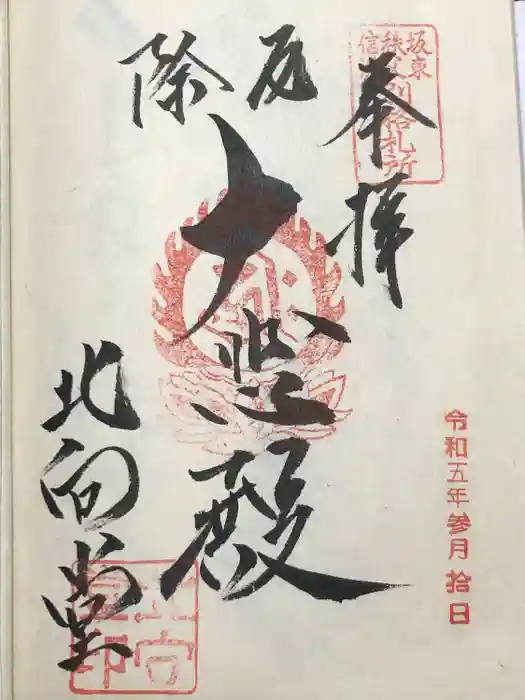 坂東
秩父
別格札所
奉拝
厄除
大悲殿
北向堂
令和五年参月拾日
北向
堂印